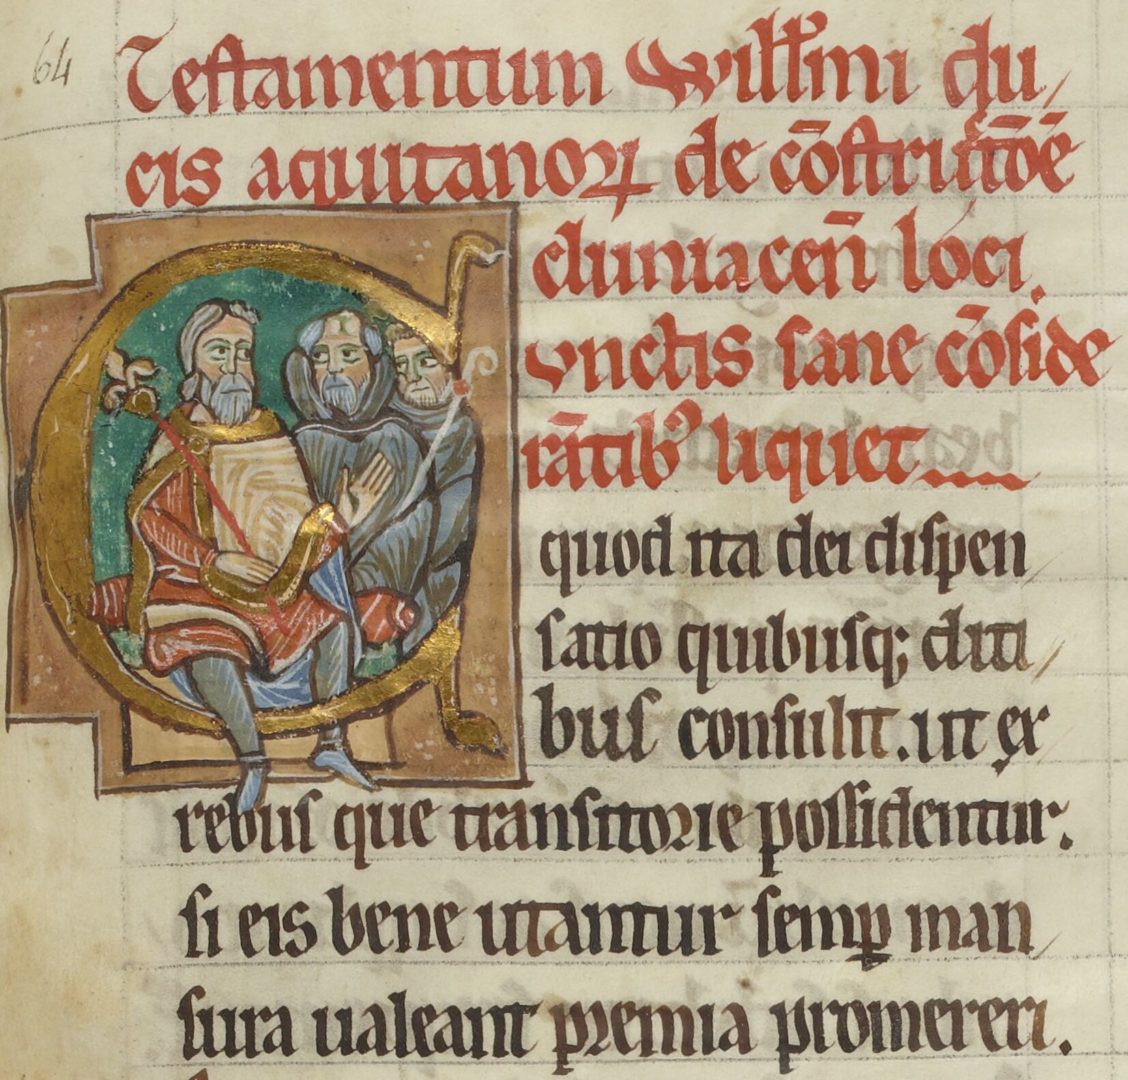 64
Testamentum Will'mi du/
cis aquitanoꝝ de cōstructōē
cluniaceñ loci.
Cunctis sane cōside
rātib⁹ liquet
quod ita dei dispen/
satio quibusq; diti/
bus consulit. ut ex
rebus que transitorie possidentur.
si eis bene utantur semꝑ man/
sura ualeant premia promereri.